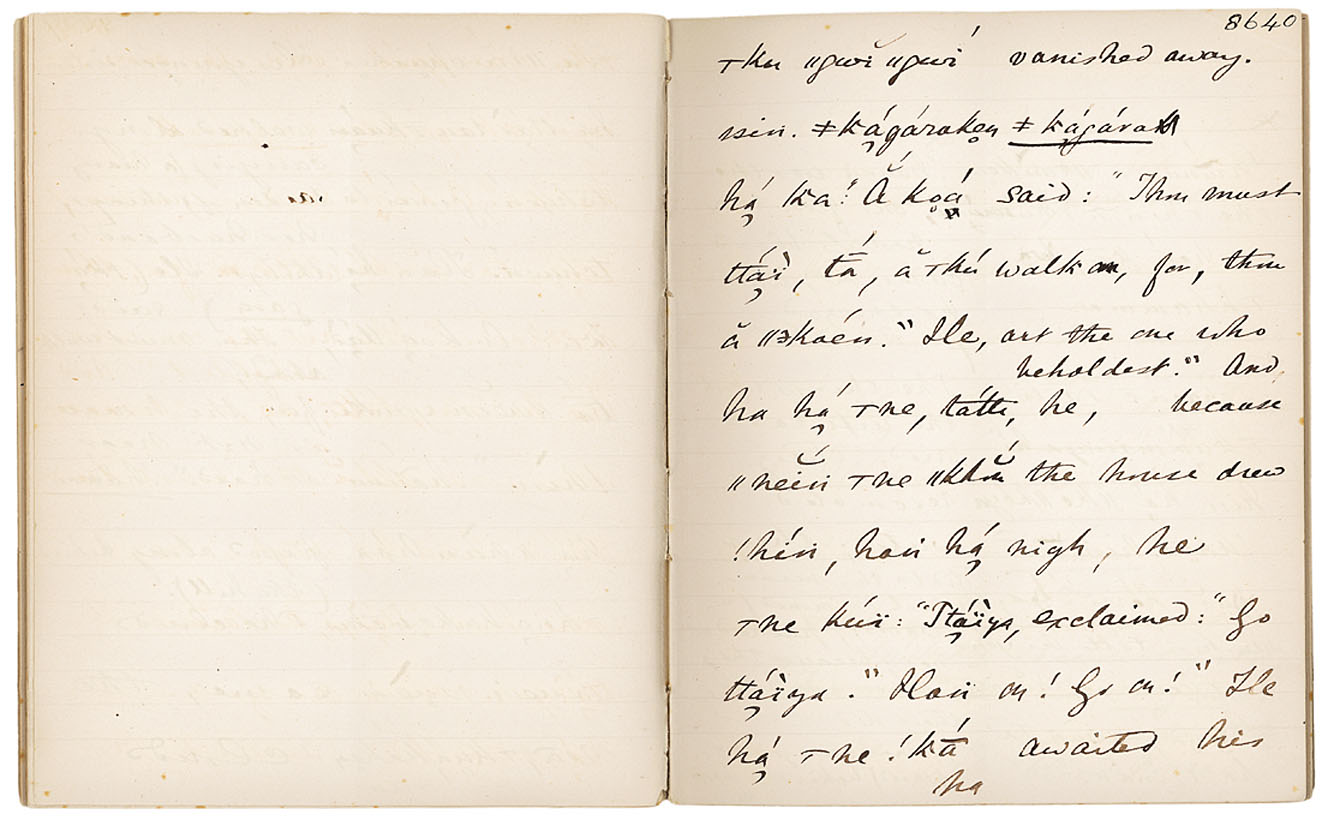 8640
⊤ku ǁgwĭ ǁgwí vanished away.
ssin. ǂkágáraken ǂkágára
há̦ ka: "Ă koá said: "Thou must
ttá̦ï, tā́, ă ⊤kú walk on, for, thou
ă art the one who
beholdest." And
ha há̦ ⊤ne, tátti, he, because
ǁneĭn ⊤ne the house drew
!hín, han há̦ nigh, he
⊤ne kúï: "Ttá̦ïya, exclaimed: "Go
ttá̦ïya." Han on! Go on!" He
há̦ ⊤ne !kā́ awaited his
ha